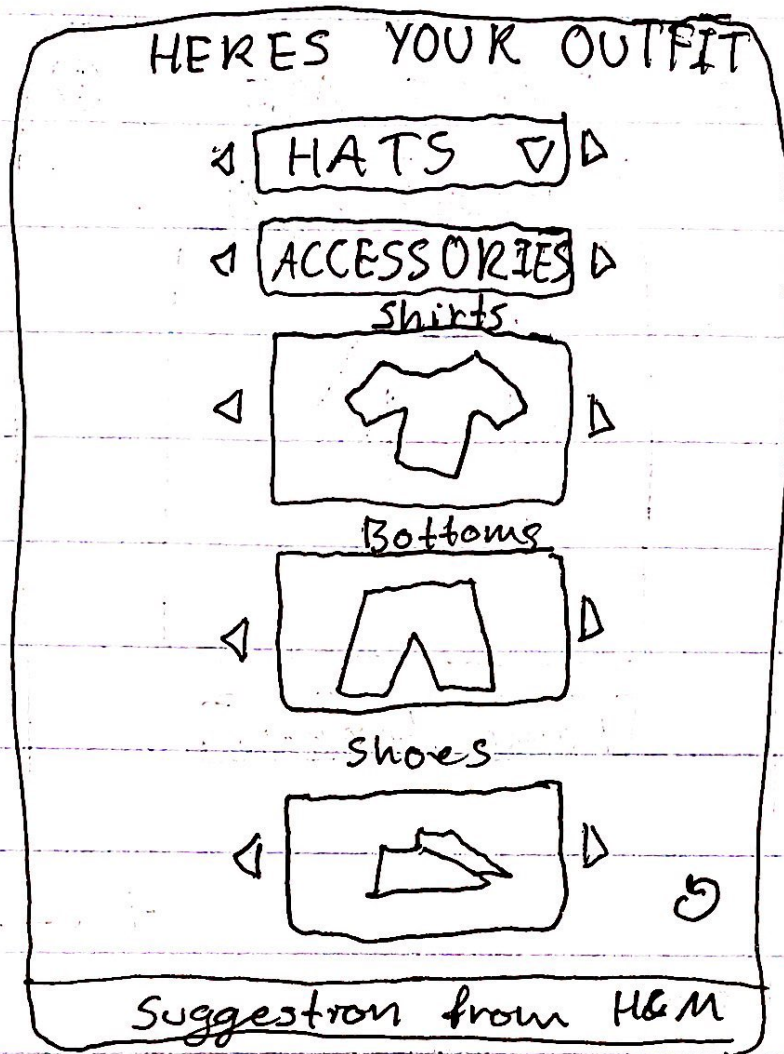 HERES YOUR OUTFIT
HATS
ACCESSORIES
Shirts
Bottoms
Shoes
Suggestion from H&M